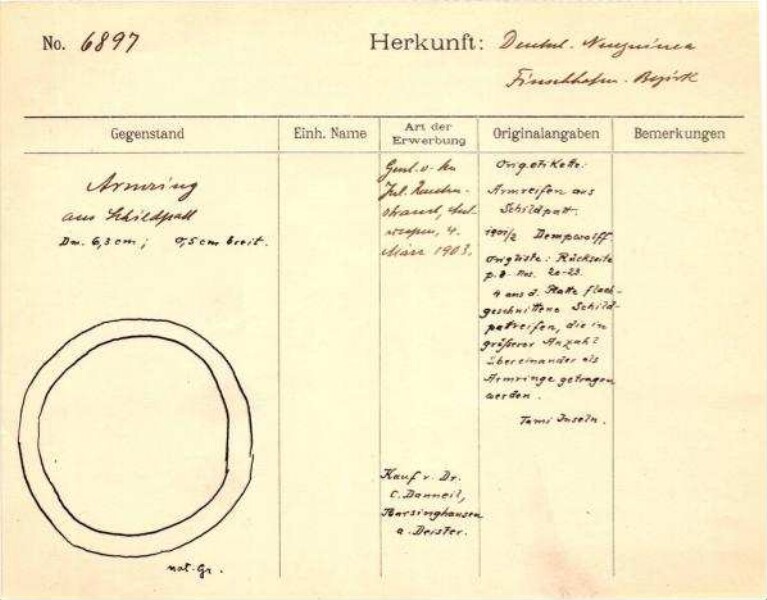 No. 6897
Herkunft: Deutsch. Neuguinea
Finschhafen-Bezirk
Gegenstand
Einh. Name
Art der
Erwerbung
Originalangaben
Bemerkungen
Armring
aus Schildpatt
Dm. 6,3 cm; 0,5 cm breit.
nat. Gr.
Jul.
4.
März 1903.
Kauf v. Dr.
C. Danneil,
Barsinghausen
a. Deister.
Origetikette:
Armreifen aus
Schildpatt.
1901/2 Dempwolff.
Origliste: Rückseite
p. 8 Nos. 20-23.
4 aus d. Platte flach-
geschnittene Schild-
patreifen, die in
größerer Anzahl
übereinander als
Armringe getragen
werden.
Tami Inseln.